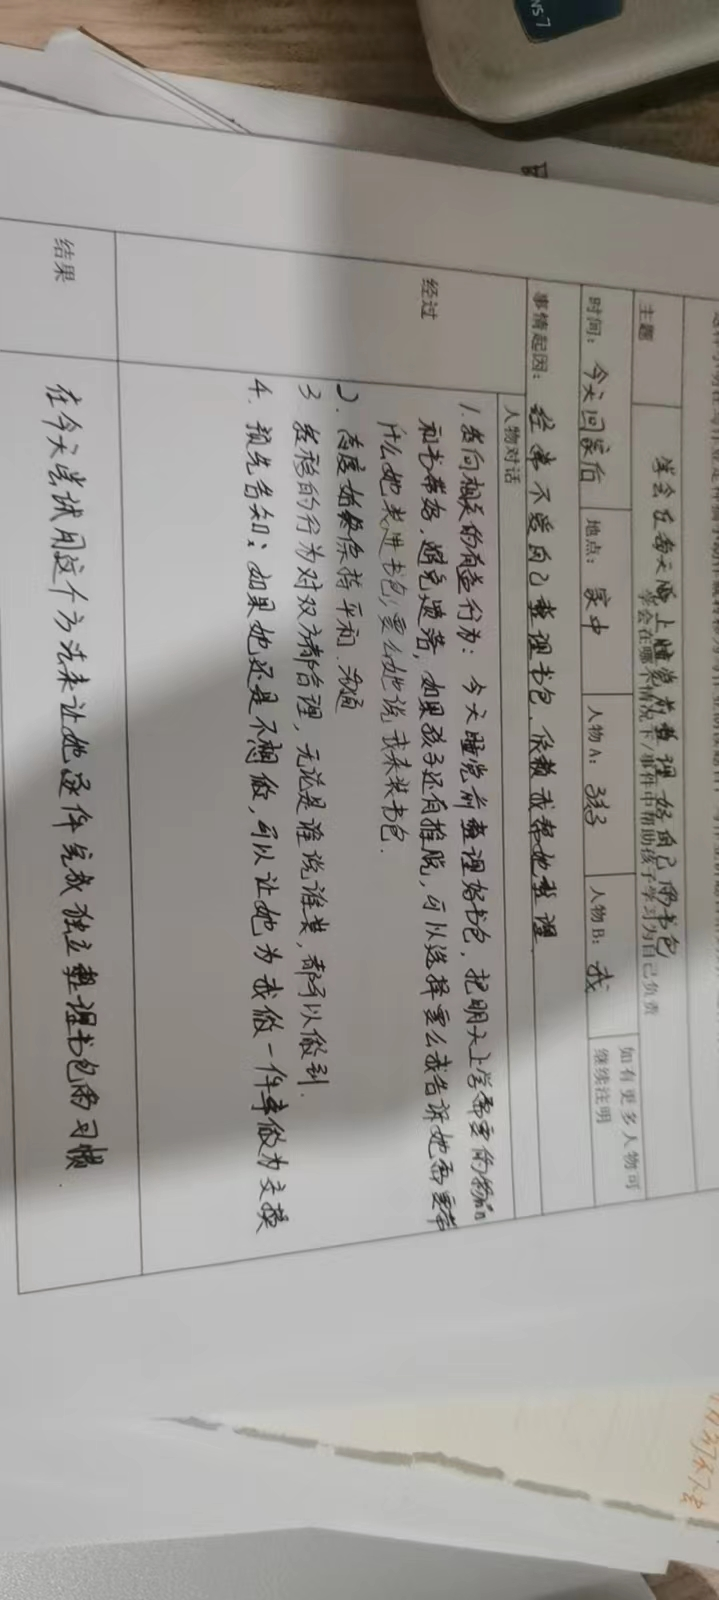 NS 7
主题
学会在每天晚上睡觉前整理好自己的书包
学会在哪个情况下/事件中帮助孩子学习为自己负责
时间: 今天回家后
地点: 家中
人物A: 孩子
人物B: 我
如有更多人物可
继续注明
事情起因: 经常不爱自己整理书包、依赖我帮她整理
人物对话
经过
1. 导向相关的有益行为: 今天睡觉前整理好书包, 把明天上学需要的物品
和书带好, 避免遗落, 如果孩子还有推脱, 可以选择要么我告诉她需要带
什么她装进书包, 要么她说我来装书包.
2. 态度始终保持平和 沟通
3 整形的行为对双方都合理, 无论是谁说谁装, 都可以做到.
4. 预先告知: 如果她还是不想做, 可以让她为我做一件事做为交换
结果
在今天尝试用这个方法来让她逐件完成独立整理书包的习惯.